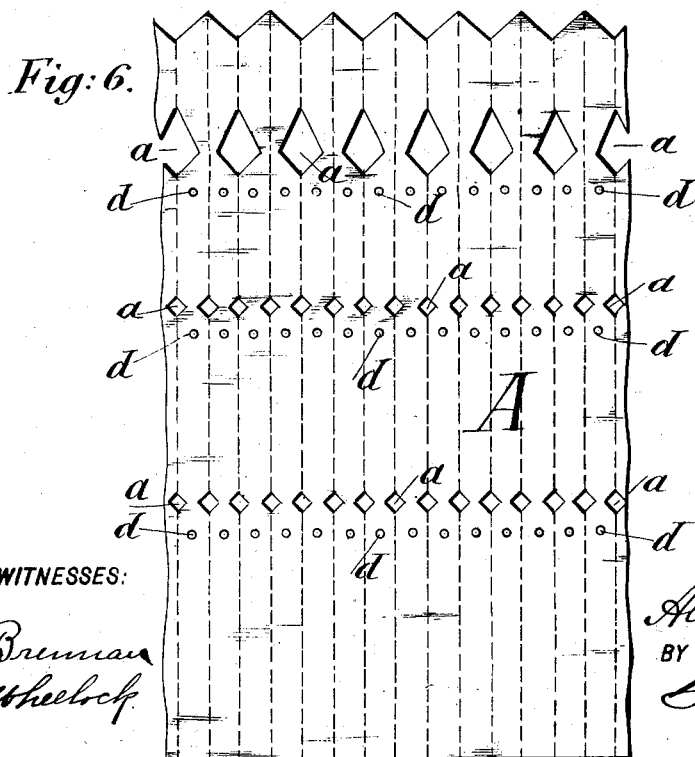 Fig: 6.
a a a
d d d
a a a
d d d
A
a a a
d d d
WITNESSES:
Brennan
Wheelock
BY